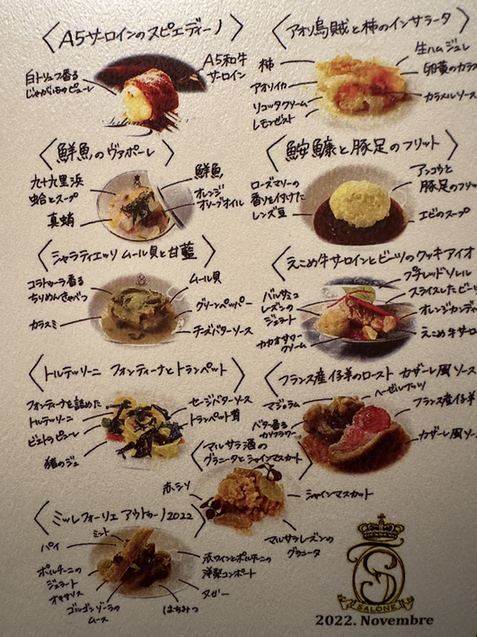 〈A5サーロインのスピエディーノ〉
白トリュフ香る
じゃがいものピューレ
A5和牛
サーロイン
〈アオリ烏賊と柿のインサラータ〉
柿
アオリイカ
リコッタクリーム
レモンゼスト
生ハムジュレ
卵黄のカラス
カラメルソース
〈鮮魚のヴァポーレ〉
九十九里浜
蛤とスープ
真蛸
鮮魚
オレンジ
オリーブオイル
〈鮟鱇と豚足のフリット〉
ローズマリーの
香りを付けた
レンズ豆
アンコウと
豚足のフリッ
エビのスープ
〈シャラティエッリ ムール貝と甘藍〉
コラトゥーラ香る
ちりめんきゃべつ
カラスミ
ムール貝
グリーンペッパー
チーズバターソース
〈えこめ牛サーロインとビーツのクッキアイオ
バルサミコ
レーズンの
ジェラート
カカオサワー
クリーム
ブラッドソレル
スライスしたビー
オレンジカンディ
えこめ牛サーロ
〈トルテッリーニ フォンティーナとトランペット〉
フォンティーナを詰めた
トルテッリーニ
ビエトラピューレ
猪のジュ
セージバターソース
トランペット茸
〈フランス産仔羊のロースト カザーレ風ソース
マジョラム
バター香る
カリフラワー
ヘーゼルナッツ
フランス産仔羊
カザーレ風ソー
〈マルサラ酒の
グラニータとシャインマスカット〉
赤シソ
シャインマスカット
マルサラレーズンの
グラニータ
〈ミッレフォーリエ アウトゥーノ2022〉
ミント
パイ
ポルチーニの
ジェラート
オキサリス
ゴルゴンゾーラの
ムース
赤ワインとポルチーニの
洋梨コンポート
タガー
はちみつ
SALONE
2022. Novembre